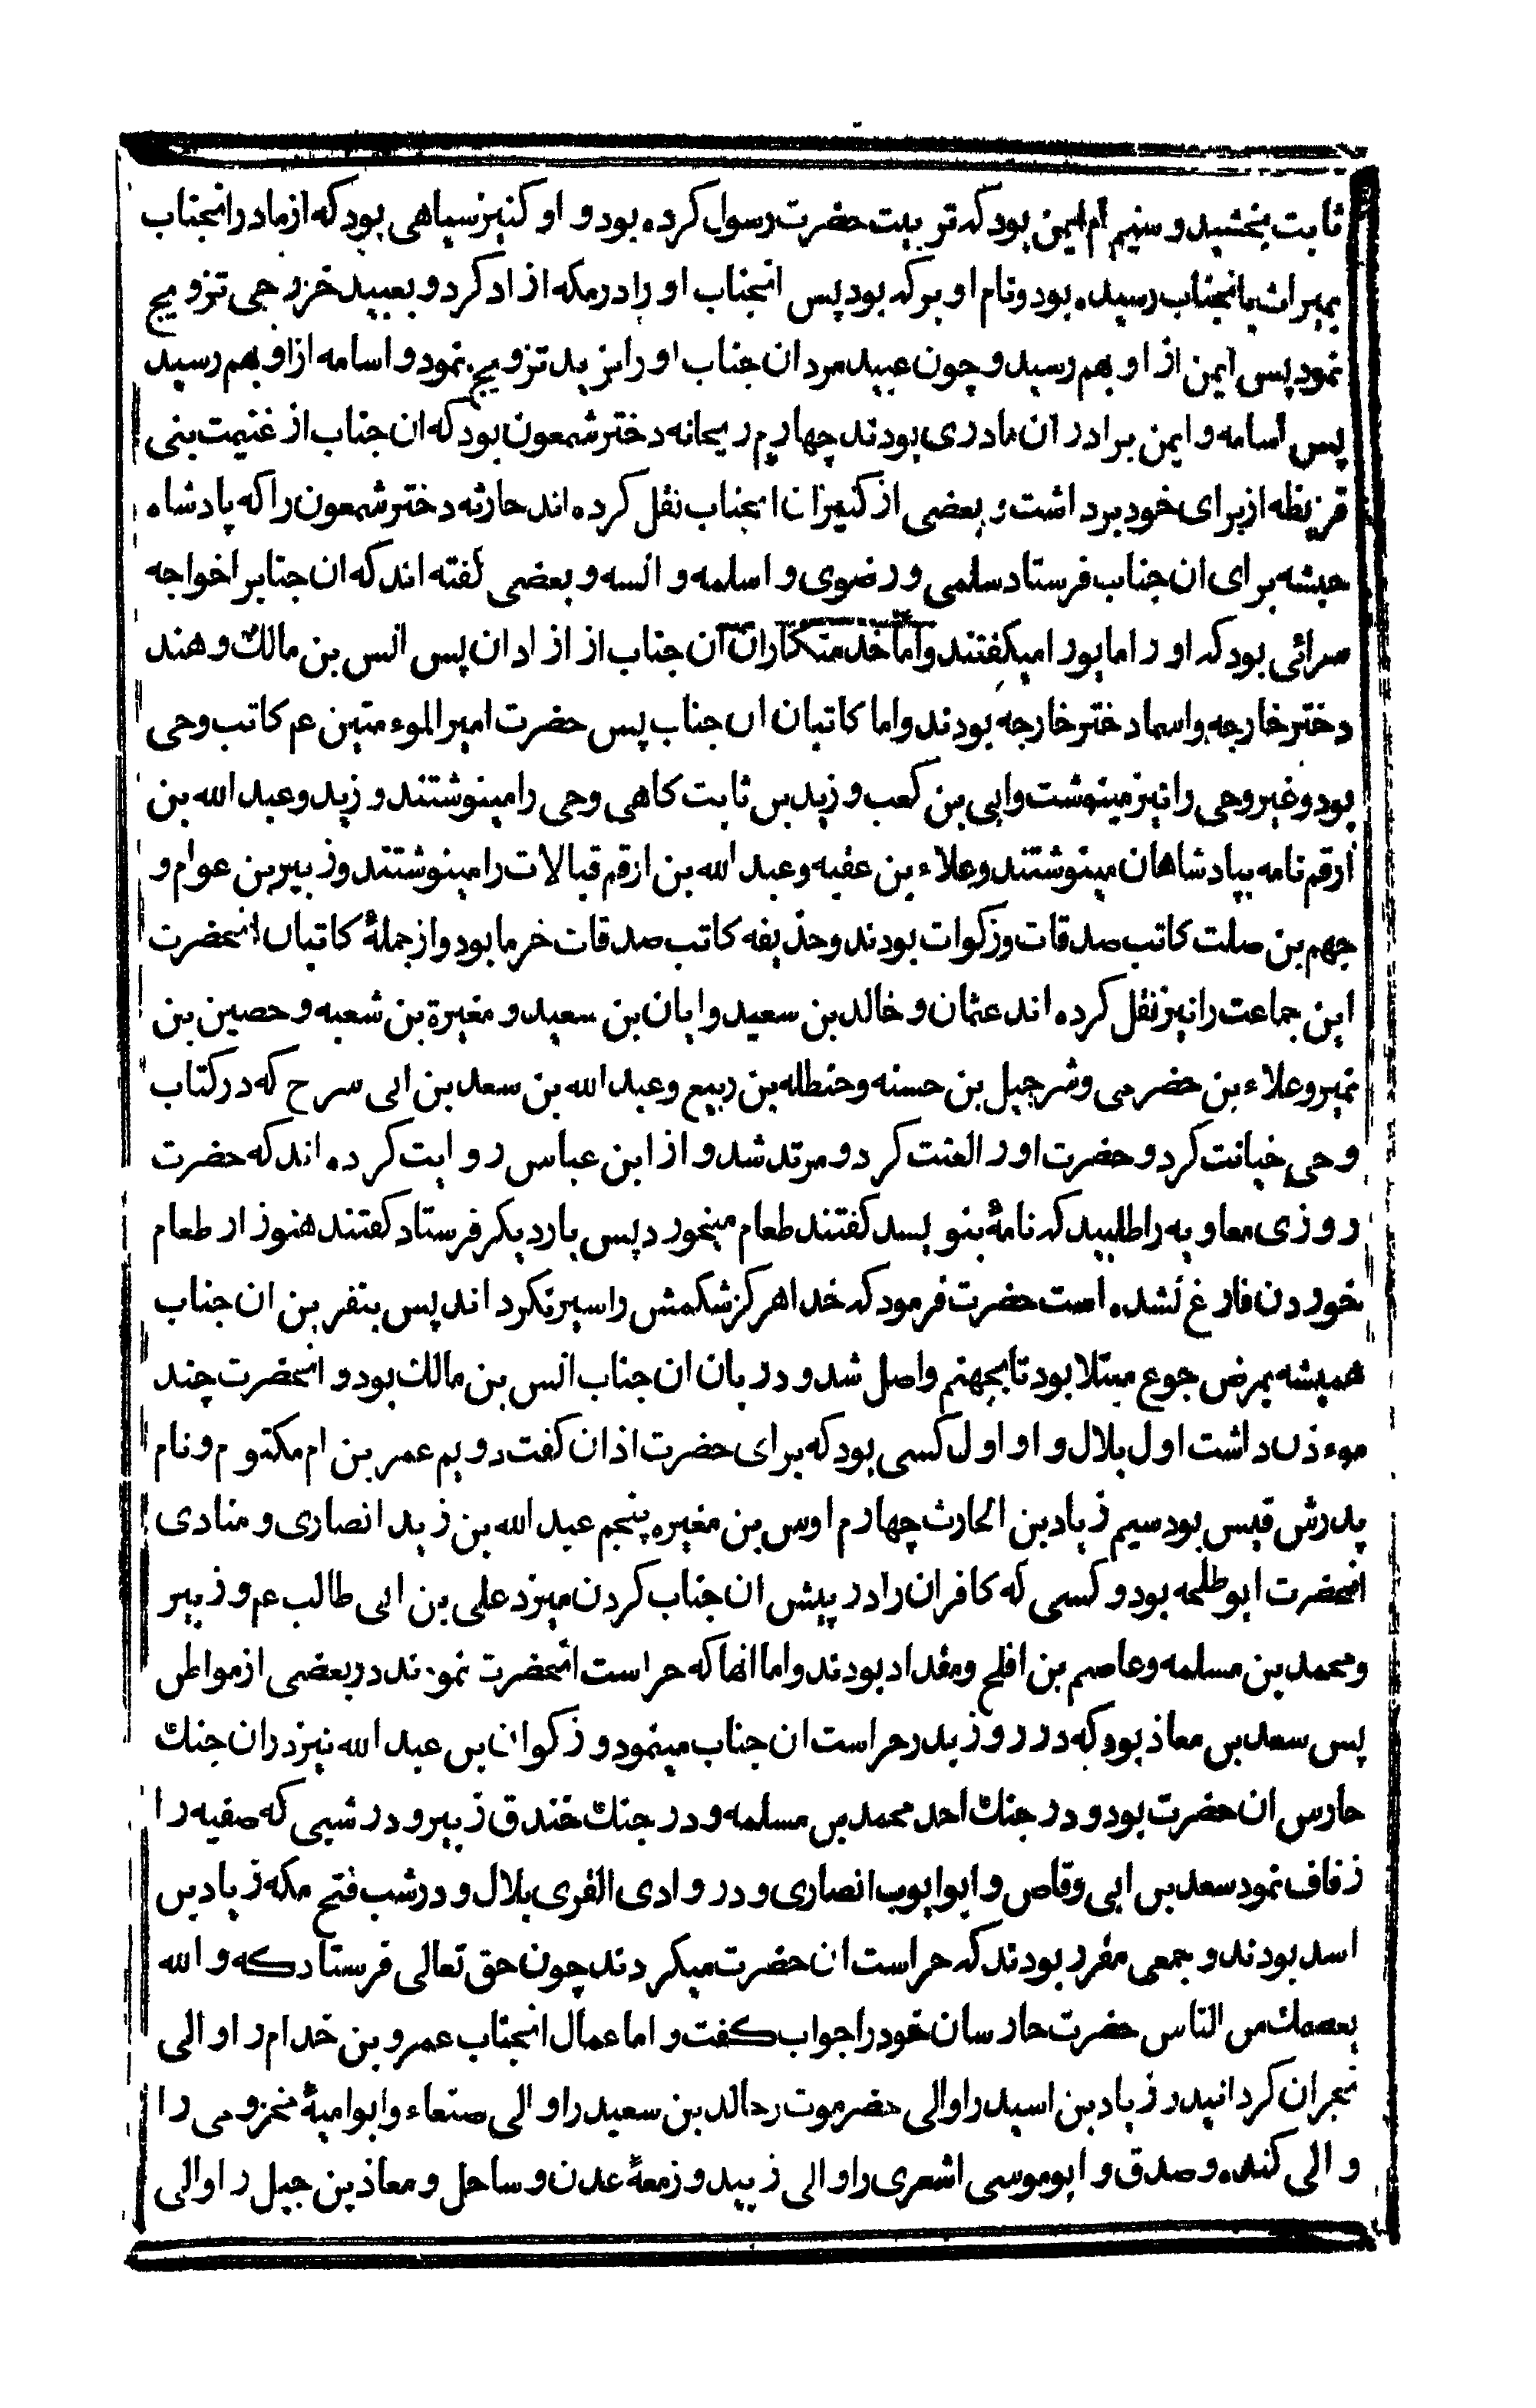 ثابت بخشید و سیم ام ایمن بود که تربیت حضرت رسول کرده بود و او کنیز سیاهی بود که از مادر انجناب
بمیراث بانجناب رسیده بود و نام او برکه بود پس انجناب او را در مکه ازاد کرد و بعبید خزرجی تزویج
نمود پس ایمن از او بهم رسید و چون عبید مرد ان جناب او را بزید تزویج نمود و اسامه از او بهم رسید
پس اسامه و ایمن برادران مادری بودند چهارم ریحانه دختر شمعون بود که ان جناب از غنیمت بنی
قریظه از برای خود برداشت و بعضی از کنیزان انجناب نقل کرده اند حارثه دختر شمعون را که پادشاه
حبشه برای ان جناب فرستاد سلمی و رضوی و اسلمه و انسه و بعضی گفته اند که ان جنابرا خواجه
سرائی بود که او را مابورا میکفتند و امّا خدمتکاران آن جناب از ازادان پس انس بن مالك و هند
دختر خارجه و اسما دختر خارجه بودند و اما کاتبان ان جناب پس حضرت امیر الموءمنین عم کاتب وحی
بود و غیر وحی را نیز مینوشت و ابی بن کعب و زید بن ثابت کاهی وحی را مینوشتند و زید و عبد الله بن
ارقم نامه بپادشاهان مینوشتند و علاء بن عقبه و عبد الله بن ارقم قبالات را مینوشتند و زبیر بن عوام و
جهم بن صلت کاتب صدقات و زکوات بودند و حذیفه کاتب صدقات خرما بود و از جملهٔ کاتبان انحضرت
این جماعت را نیز نقل کرده اند عثمان و خالد بن سعید و ابان بن سعید و مغیرة بن شعبه و حصین بن
نمیر و علاء بن حضرمی و شرجیل بن حسنه و حنطله بن ربیع و عبد الله بن سعد بن ابی سرح که در کتاب
وحی خیانت کرد و حضرت او را لعنت کرد و مرتد شد و از ابن عباس روایت کرده اند که حضرت
روزی معاویه را طلبید که نامهٔ بنویسد کفتند طعام میخورد پس بار دیکر فرستاد کفتند هنوز از طعام
خوردن فارغ نشده است حضرت فرمود که خدا هرکز شکمش را سیر نکرداند پس بنفرین ان جناب
همیشه بمرض جوع مبتلا بود تا بجهنم واصل شد و دربان ان جناب انس بن مالك بود و انحضرت چند
موءذن داشت اول بلال و او اول کسی بود که برای حضرت اذان کفت دویم عمر بن ام مکتوم و نام
پدرش قیس بود سیم زیاد بن الحارث چهارم اوس بن مغیره پنجم عبد الله بن زید انصاری و منادی
انحضرت ابو طلحه بود و کسی که کافران را در پیش ان جناب کردن میزد علی بن ابی طالب عم و زبیر
و محمد بن مسلمه و عاصم بن افلح و مقداد بودند و اما انها که حراست انحضرت نمودند در بعضی از مواطن
پس سعد بن معاذ بود که در روز بدر حراست ان جناب مینمود و زکوان بن عبد الله نیز در ان جنك
حارس ان حضرت بود و در جنك احد محمد بن مسلمه و در جنك خندق زبیر و در شبی که صفیه را
زفاف نمود سعد بن ابی وقاص و ابو ایوب انصاری و در وادی القری بلال و در شب فتح مکه زیاد بن
اسد بودند و جمعی مقرر بودند که حراست ان حضرت میکردند چون حق تعالی فرستاد که و الله
یعصمك من الناس حضرت حارسان خود را جواب کفت و اما عمال انجناب عمرو بن خدام را والی
نجران کردانید و زیاد بن اسید را والی حضرموت و خالد بن سعید را والی صنعاء و ابو امیهٔ مخزومی را
والی کنده و صدق و ابو موسی اشعری را والی زبید و زمعهٔ عدن و ساحل و معاذ بن جبل را والی